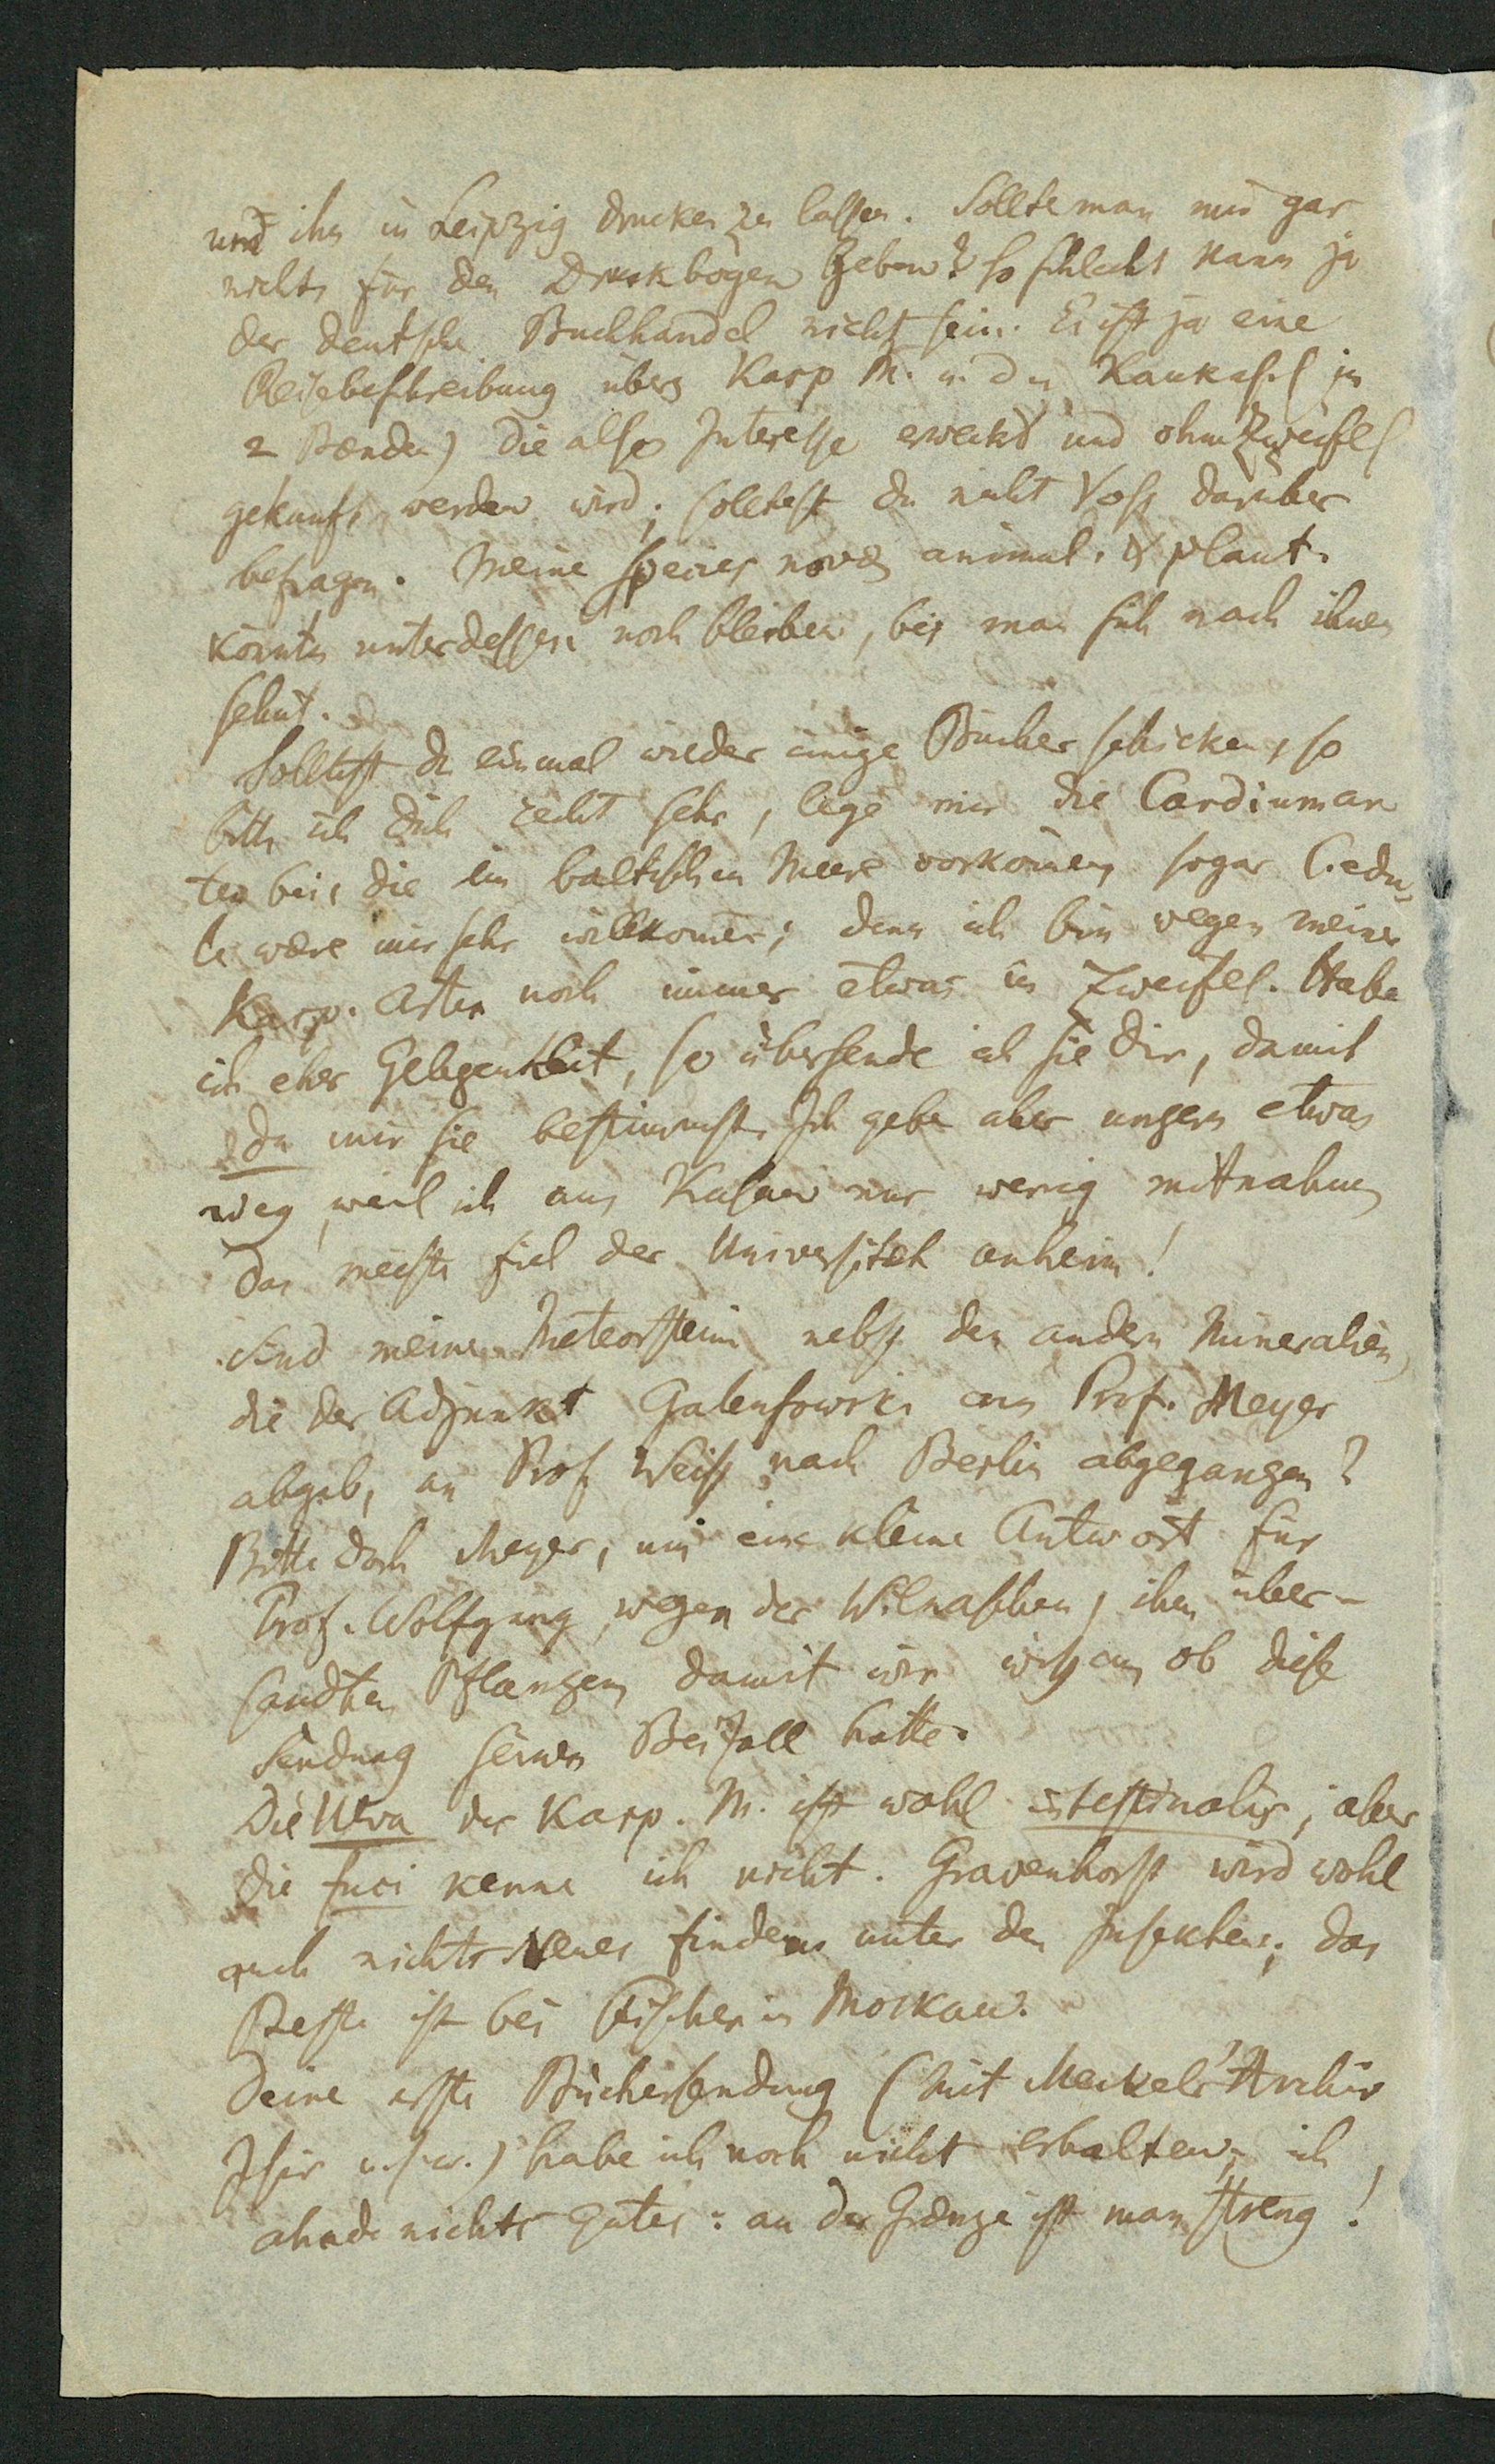 und ihn in Leipzig drucken zu lassen. Sollte man mir gar
nichts für den Druckbogen geben? so schlecht kann ja
der deutsche Buchhandel nicht sein. Es ist ja eine
Reisebeschreibung übers Kasp M. u. den Kaukasus in
2 Bænden) die also Interesse erweckt und ohne Zweifel
gekauft werden wird; solltest du nicht Voss darüber
befragen. Meine species novæ animal. & plant.
könnten unterdessen noch bleiben, bis man sich nach ihnen
sehnt.
Solltest du einmal wieder einige Bücher schicken, so
bitte ich dich recht sehr, lege mir die Cardiumar
ten bei, die im baltischen Meere vorkom̄en, sogar C. edu-
le wære mir sehr willkom̄en; denn ich bin wegen meiner
Kasp. Arten noch immer etwas in Zweifel. Habe
ich eher Gelegenheit, so übersende ich sie dir, damit
du mir sie bestimmst. Ich gebe aber ungern etwas
weg, weil ich aus Kasan nur wenig mitnahm,
das meiste fiel der Universitæt anheim!
Sind meine Meteorsteine nebst den andern Mineralien,
die der Adjunkt an Prof. Meyer
abgab, an Prof Weiss nach Berlin abgegangen?
Bitte doch Meyer, um eine kleine Antwort für
Prof. Wolfgang, wegen der Wilnaschen, ihm über-
sandten Pflanzen, damit wir wissen, ob diese
Sendung seinen Beifall hatte.
Die Ulva des Kasp. M. ist wohl intestinalis, aber
die fuci kenne ich nicht. Gravenhorst wird wohl
auch nichts Neues finden unter den Insekten; das
Beste ist bei Fischer in Moskau.
Deine erste Büchersendung (mit Meckels Archiv
Isis u.s.w.) habe ich noch nicht erhalten, ich
ahnde nichts Gutes: an der Grænze ist man streng!